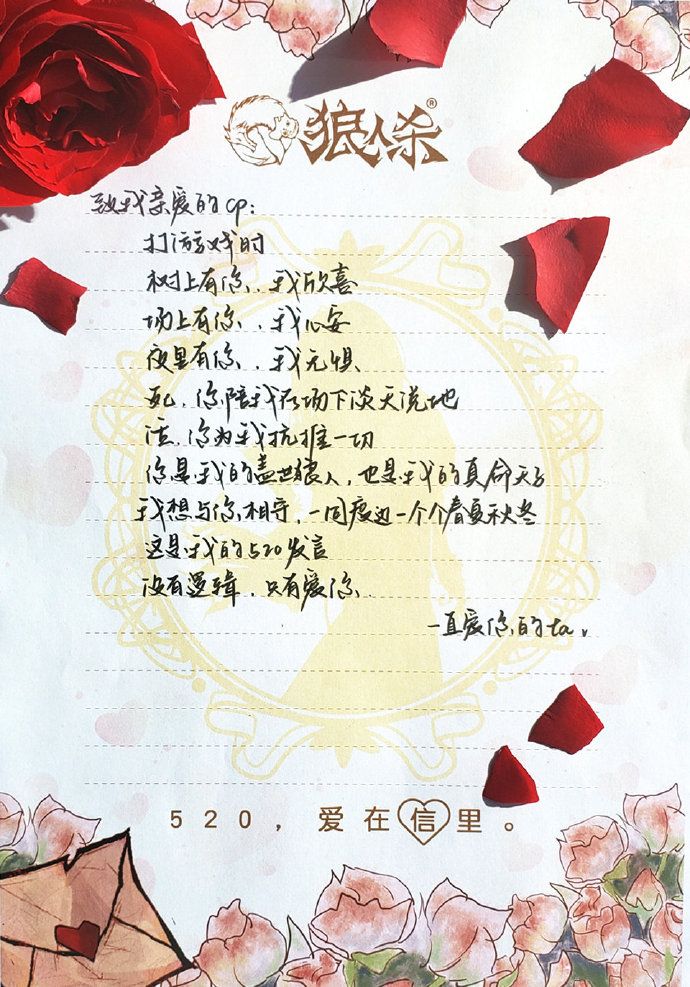 狼人杀®
致我亲爱的cp：
打游戏时
树上有你，我欣喜
场上有你，我心安
夜里有你，我无惧
死，你陪我在场下谈天说地
活，你为我抗推一切
你是我的盖世狼人，也是我的真命天子
我想与你相守，一同度过一个个春夏秋冬
这是我的520发言
没有逻辑，只有爱你。
一直爱你的ta。
520，爱在信里。